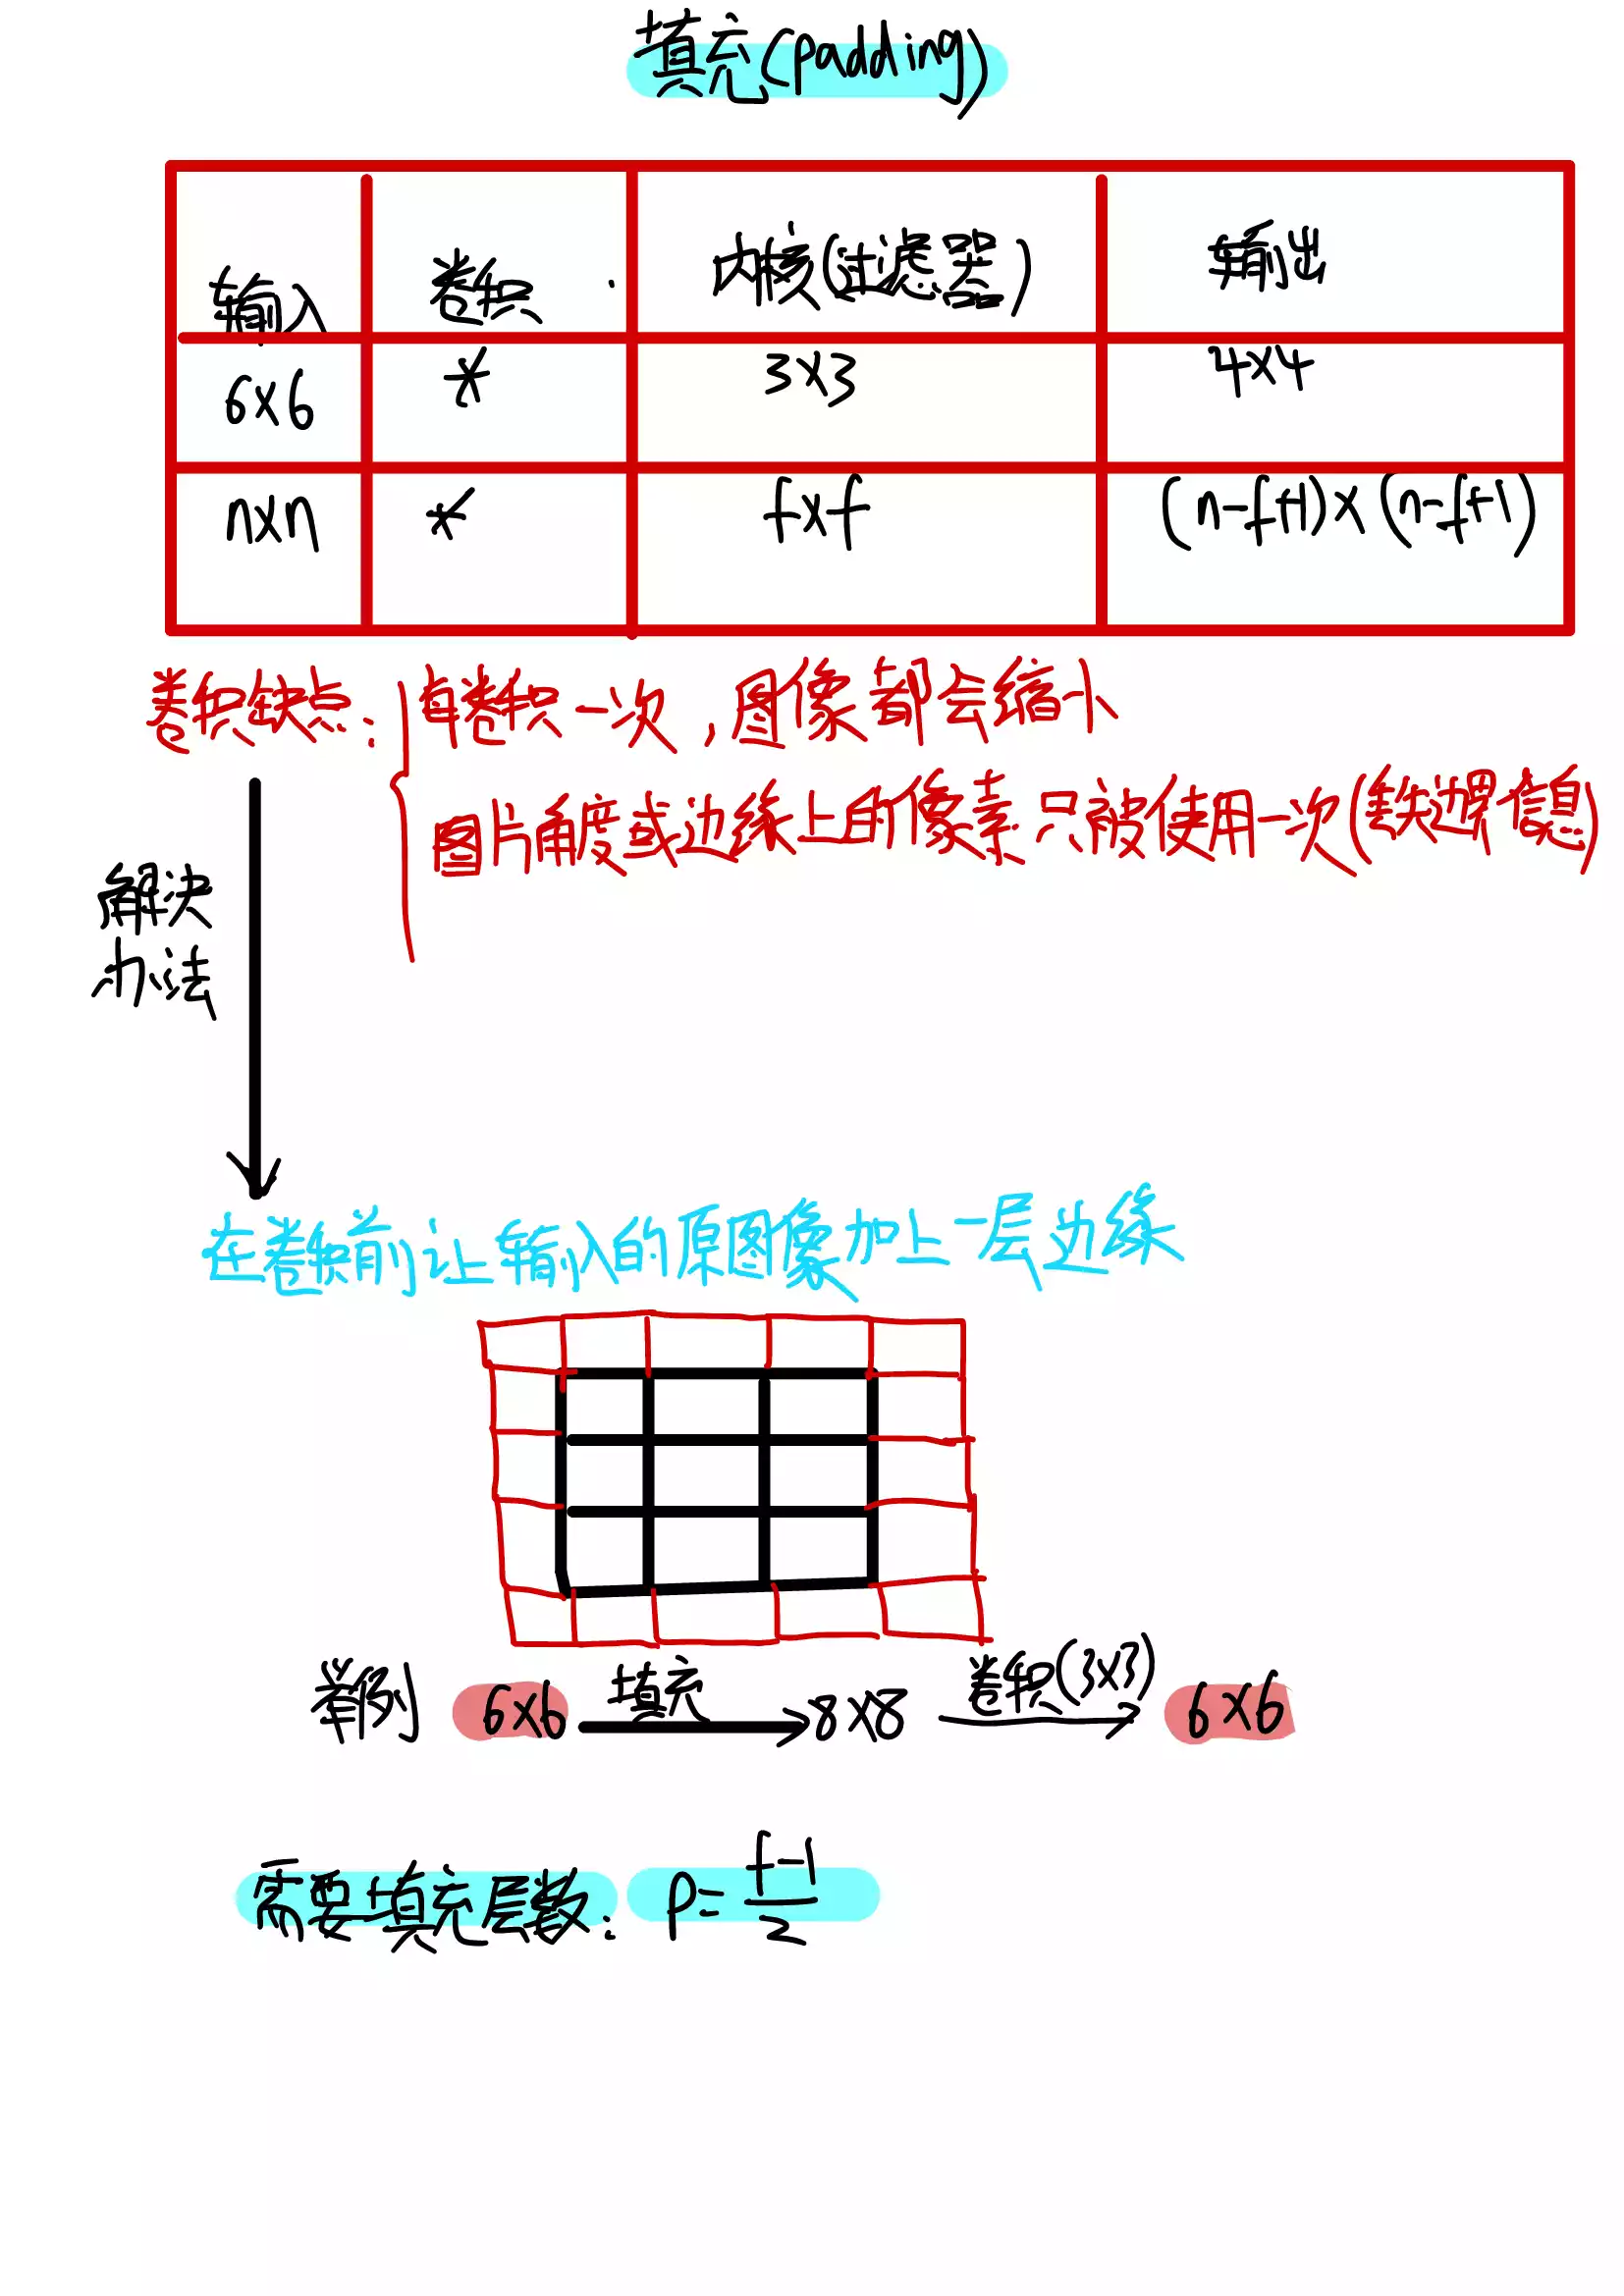 填充(padding)
输入 卷积 内核(过滤器) 输出
6×6 * 3×3 4×4
n×n * f×f (n-f+1)×(n-f+1)
卷积缺点: 每卷积一次,图像都会缩小
图片角度或边缘上的像素只被使用一次(丢失边界信息)
解决
办法
在卷积前让输入的原图像加上一层边缘
举例 6×6 填充 8×8 卷积(3×3) 6×6
需要填充层数: p=\frac{f-1}{2}